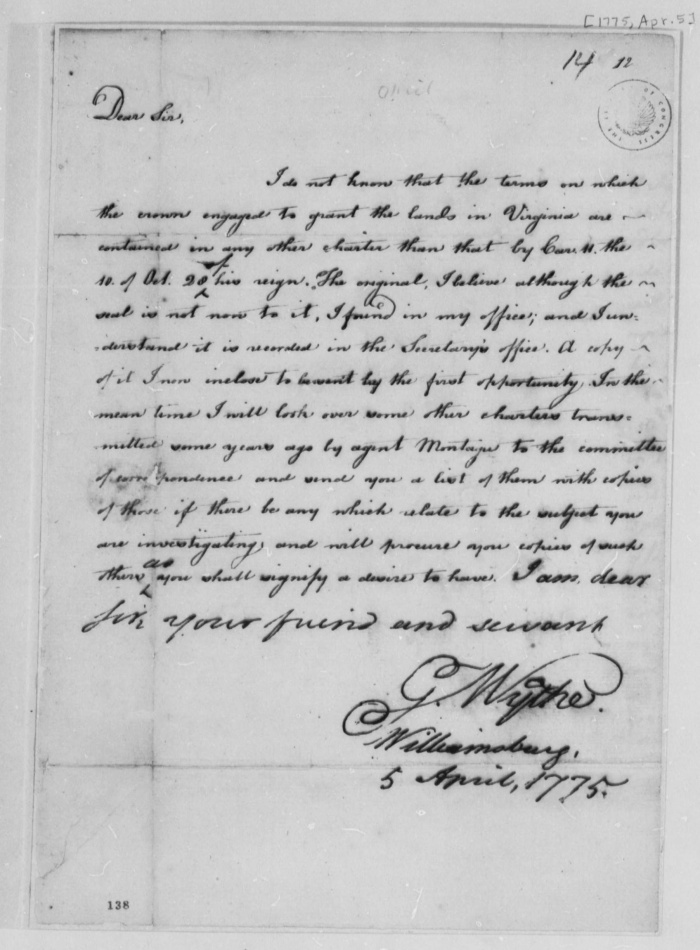 [1775, Apr. 5]
14 12
Dear Sir,
I do not know that the terms on which
the crown engaged to grant the lands in Virginia are
contained in any other charter than that by Car. II. the
10. of Oct. 28 of his reign. The original, I believe although the
seal is not now to it, I found in my office; and I un:
:derstand it is recorded in the Secretary's office. A copy
of it I now inclose to be sent by the first opportunity. In the
mean time I will look over some other charters trans:
:mitted some years ago by agent Montague to the committee
of correspondence and send you a list of them with copies
of those if there be any which relate to the subject you
are investigating, and will procure you copies of such
others as you shall signify a desire to have. I am, dear
sir, your friend and servant
G. Wythe.
Williamsburg,
5 April, 1775.
138